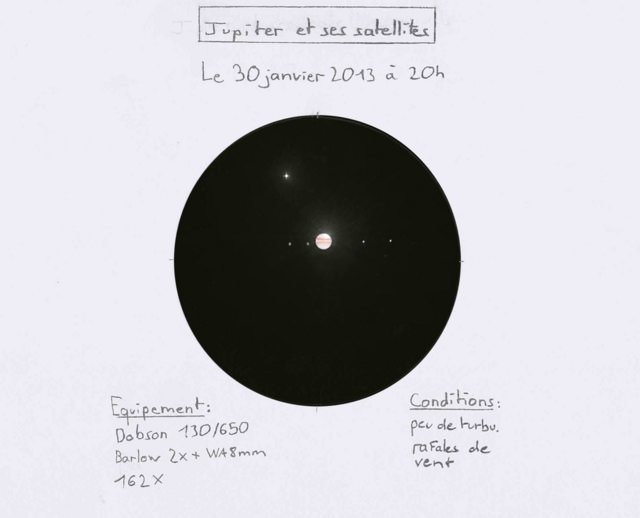 Jupiter et ses satellites
Le 30 janvier 2013 à 20h
Equipement:
Dobson 130/650
Barlow 2x + WA8mm
162x
Conditions:
peu de turbu.
rafales de
vent